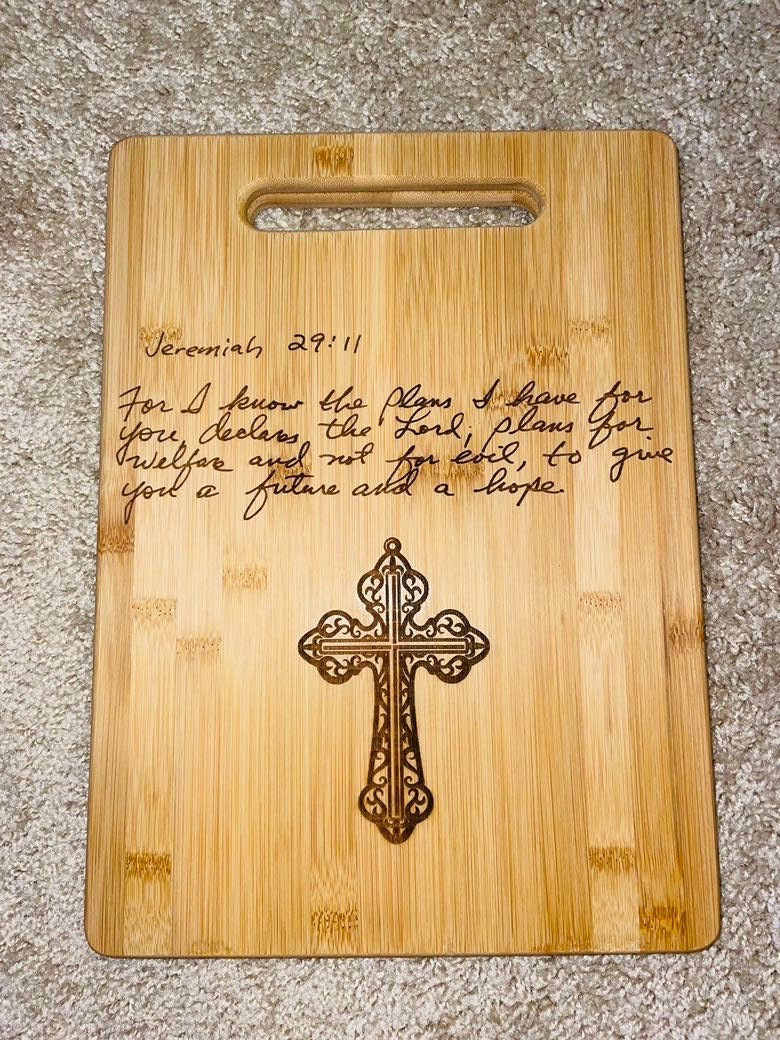 Jeremiah 29:11
For I know the plans I have for
you, declars the Lord, plans for
welfare and not for evil, to give
you a future and a hope.